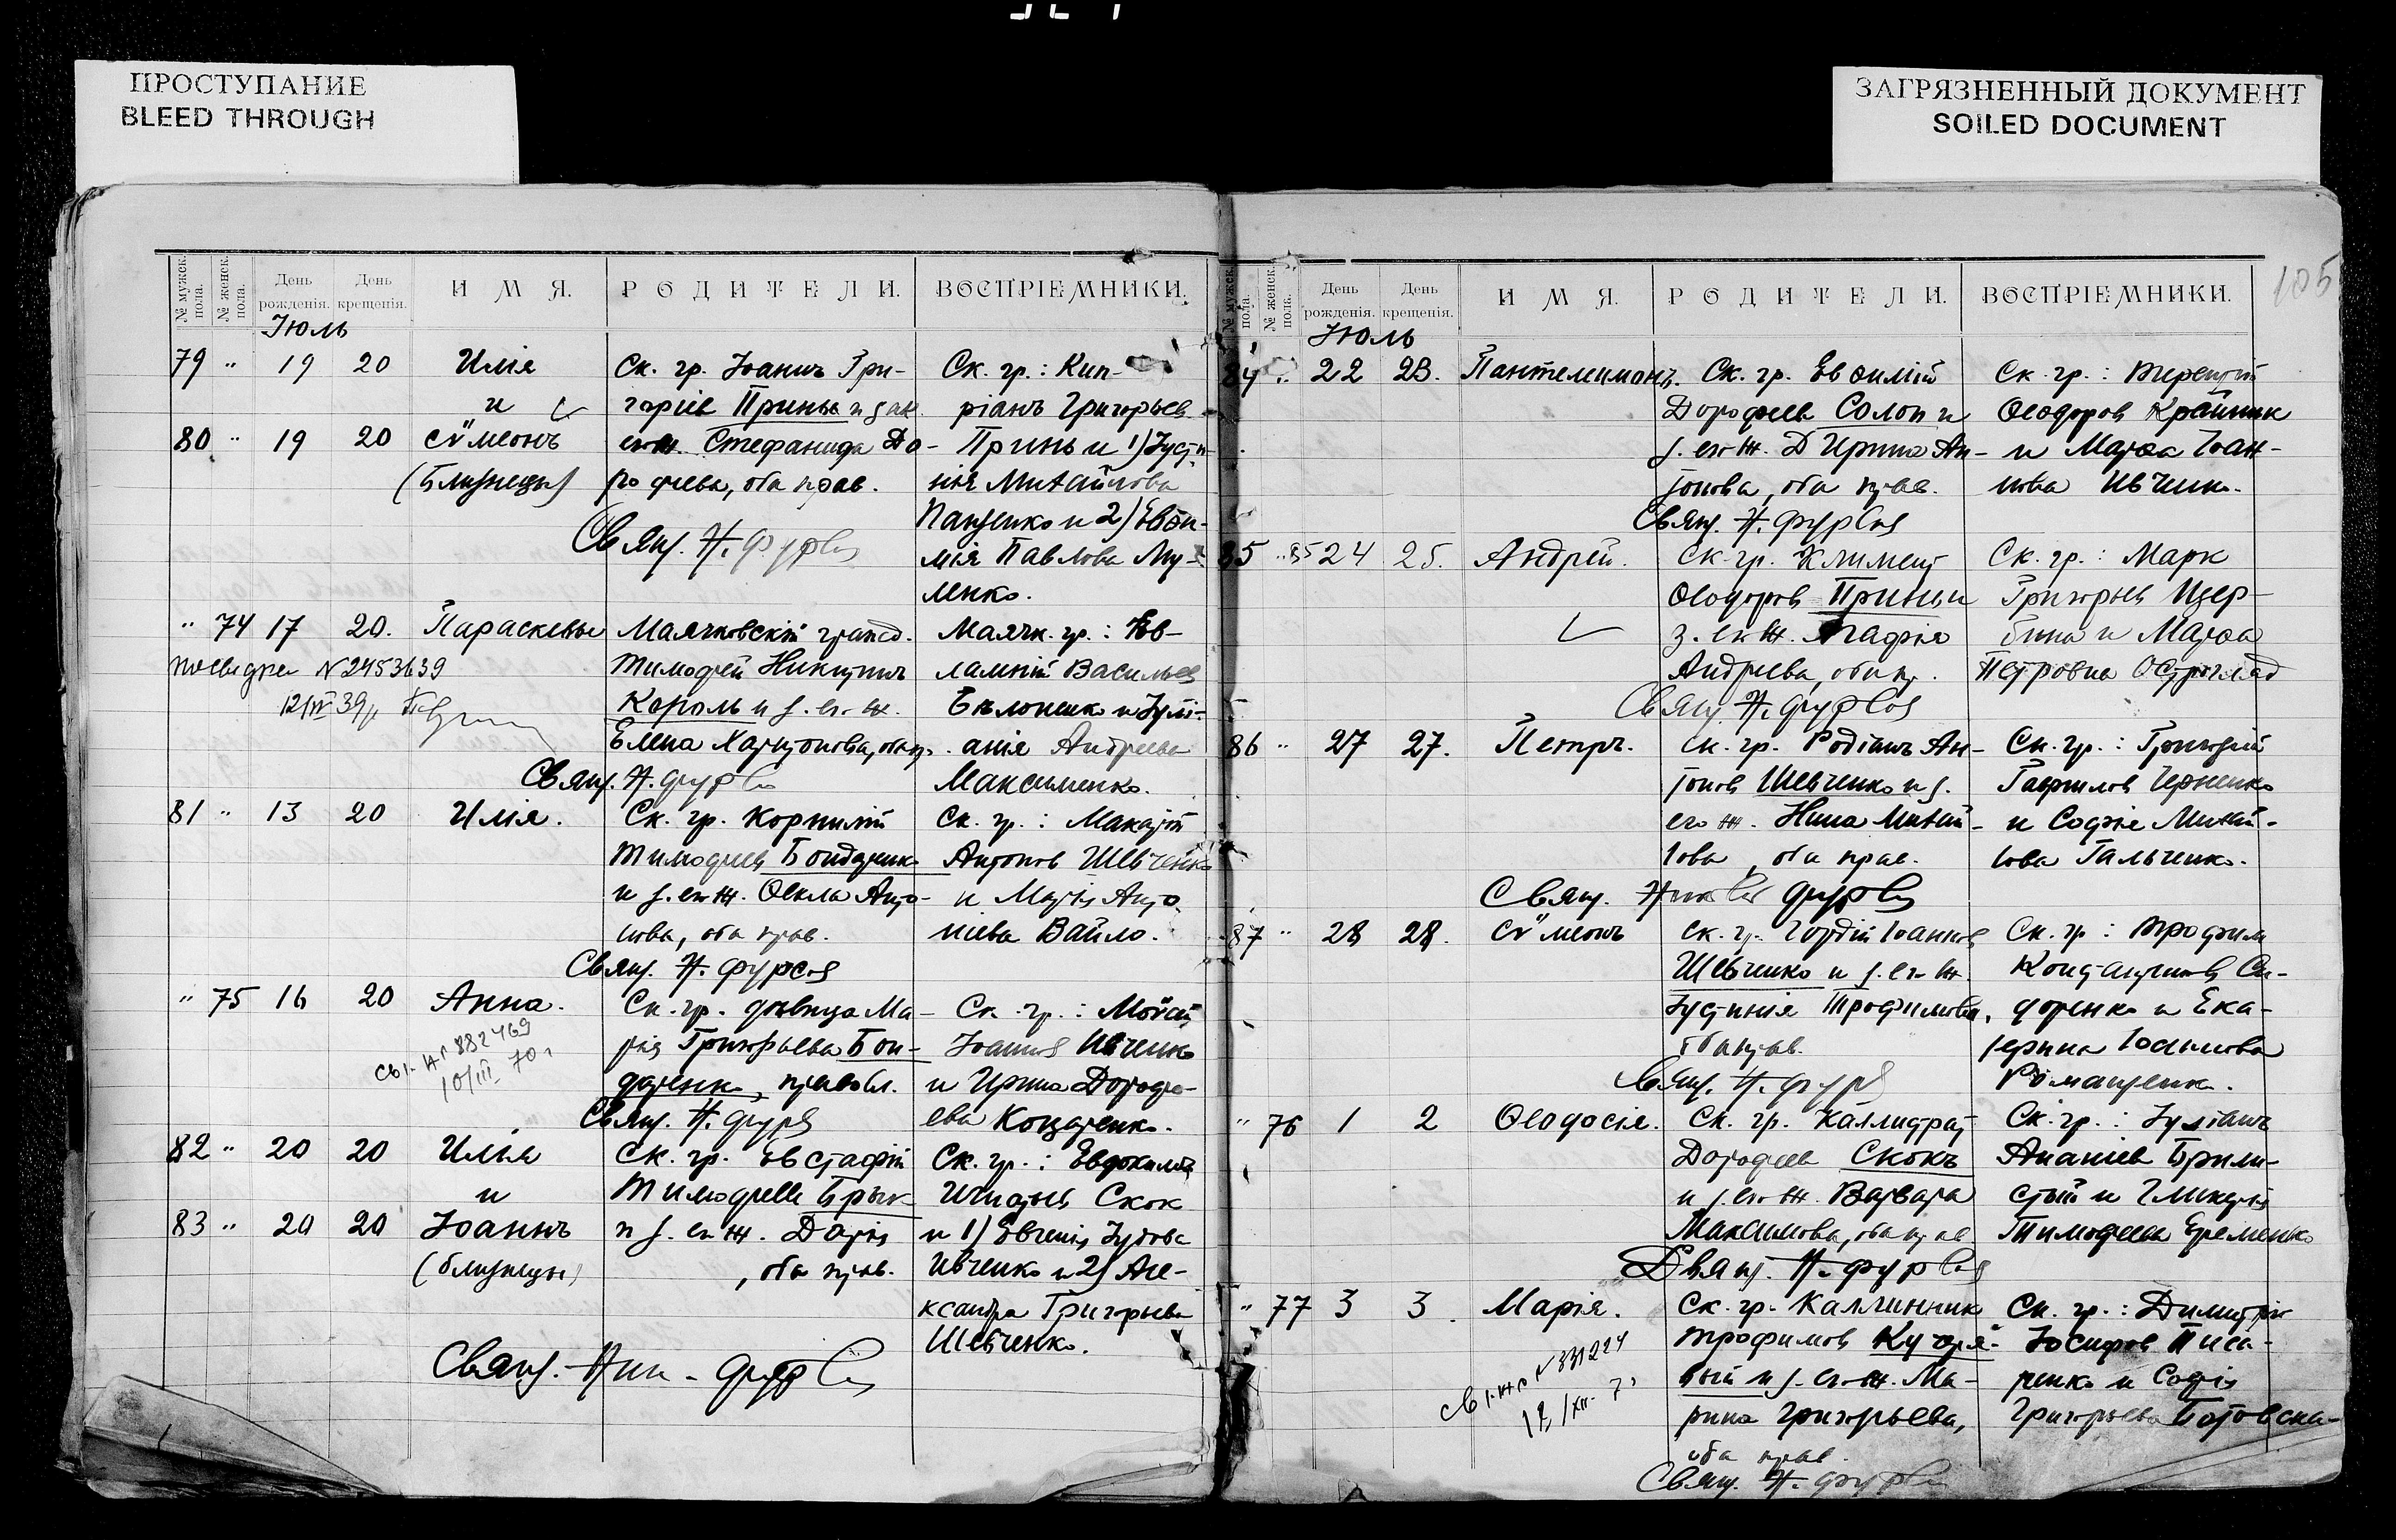 ПРОСТУПАНИЕ
BLEED THROUGH
ЗАГРЯЗНЕННЫЙ ДОКУМЕНТ
SOILED DOCUMENT
105
№ мужск. пола.
№ женск. пола.
День рождения.
День крещения.
ИМЯ.
РОДИТЕЛИ.
ВОСПРІЕМНИКИ.
Іюль
79 " 19 20 Илія
и
80 " 19 20 Сѷмеонъ
(Близнецы)
Ск. гр. Іоаннъ Гри-
горіев Принь и зак.
его ж. Стефанида До-
рофеева, оба прав.
Ск. гр.: Кип-
ріанъ Григорьев
Принь и 1) Іусти-
нія Михайлова
Панченко и 2) Евѳи-
мія Павлова Му-
ленко.
Свящ. Н. Фурсов
" 74 17 20. Параскева
Маячковскій гражд.
Тимофей Никитич
Король и з. его ж.
Елена Харитонова, оба пр.
Маячк. гр.: Ев-
лампій Васильев
Бѣлоненко и Іулі-
анія Андреева
Максименко.
№ 2453639
Свящ. Н. Фурсов
81 " 13 20 Илія.
Ск. гр. Корнилій
Тимофеев Бондаренко
и з. его ж. Ѳекла Анто-
нова, оба прав.
Ск. гр.: Макарій
Антонов Шевченко
и Марія Анто-
ніева Вайло.
Свящ. Н. Фурсов
" 75 16 20 Анна.
Ск. гр. дѣвица Ма-
рія Григорьева Бон-
даренко, правосл.
Ск. гр.: Моѷсей
Іоаннов Ивченко
и Ирина Дорофе-
ева Коцаренко.
882469
10/III 70 г
Свящ. Н. Фурсов
82 " 20 20 Илія
и
83 " 20 20 Іоаннъ
(близнецы)
Ск. гр. Евстафій
Тимофеев Брык
и з. его ж. Дарія
, оба прав.
Ск. гр.: Евдоким
Скок
и 1) Евгенія
Ивченко и 2) Але-
ксандра Григорьева
Шевченко.
Свящ. Ник. Фурсов
№ мужск. пола.
№ женск. пола.
День рождения.
День крещения.
ИМЯ.
РОДИТЕЛИ.
ВОСПРІЕМНИКИ.
Іюль
84 " 22 23. Пантелеимонъ.
Ск. гр. Евѳимій
Дорофеев Солоп и
з. его ж. Ирина Ан-
тонова, оба прав.
Ск. гр.: Терентій
Ѳеодоров Крайник
и Марѳа Іоан-
нова Ивченко.
Свящ. Н. Фурсов
85 " 24 25. Андрей.
Ск. гр. Климент
Ѳеодоров Принь и
з. его ж. Агафія
Андреева, оба пр.
Ск. гр.: Марк
Григорьев Щер-
бина и Марѳа
Петровна Остроглад
Свящ. Н. Фурсов
86 " 27 27. Петръ.
Ск. гр. Родіонъ Ан-
тонов Шевченко и з.
его ж. Нина Михай-
лова, оба прав.
Ск. гр.: Григорій
Гаврилов Черненко
и Софія Михай-
лова Гальченко.
Свящ. Николай Фурсов
87 " 28 28. Сѷмеонъ
Ск. гр. Гордій Іоаннов
Шевченко и з. его ж.
Іустинія Трофимова,
оба прав.
Ск. гр.: Трофим
Константинов Си-
доренко и Ека-
терина
Романченко.
Свящ. Н. Фурсов
" 76 1 2 Ѳеодосія.
Ск. гр. Каллистрат
Дорофеев Скокъ
и з. его ж. Варвара
Максимова, оба прав
Ск. гр.: Іуліанъ
Ананіев Брили-
стый и Гликерія
Тимофеева Еременко
Свящ. Н. Фурсов
" 77 3 3. Марія.
Ск. гр. Каллинник
Трофимов Кучеря-
вый и з. его ж. Ма-
рина Григорьева,
оба прав.
Ск. гр.: Димитрій
Іосифов Писа-
ренко и Софія
Григорьева
Свящ. Н. Фурсов